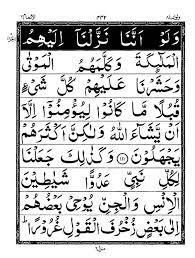 وَلَوْ اَنَّنَا نَزَّلْنَاۤ اِلَيْهِمُ
الْمَلٰٓئِكَةَ وَكَلَّمَهُمُ الْمَوْتٰى
وَحَشَرْنَا عَلَيْهِمْ كُلَّ شَىْءٍ
قُبُلًا مَّا كَانُوْا لِيُؤْمِنُوْۤا اِلَّاۤ
اَنْ يَّشَآءَ اللّٰهُ وَلٰكِنَّ اَكْثَرَهُمْ
يَجْهَلُوْنَ ﴿۱۱۱﴾ وَكَذٰلِكَ جَعَلْنَا
لِكُلِّ نَبِىٍّ عَدُوًّا شَيٰطِيْنَ
الْاِنْسِ وَالْجِنِّ يُوْحِىْ بَعْضُهُمْ
اِلٰى بَعْضٍ زُخْرُفَ الْقَوْلِ غُرُوْرًا ؕ